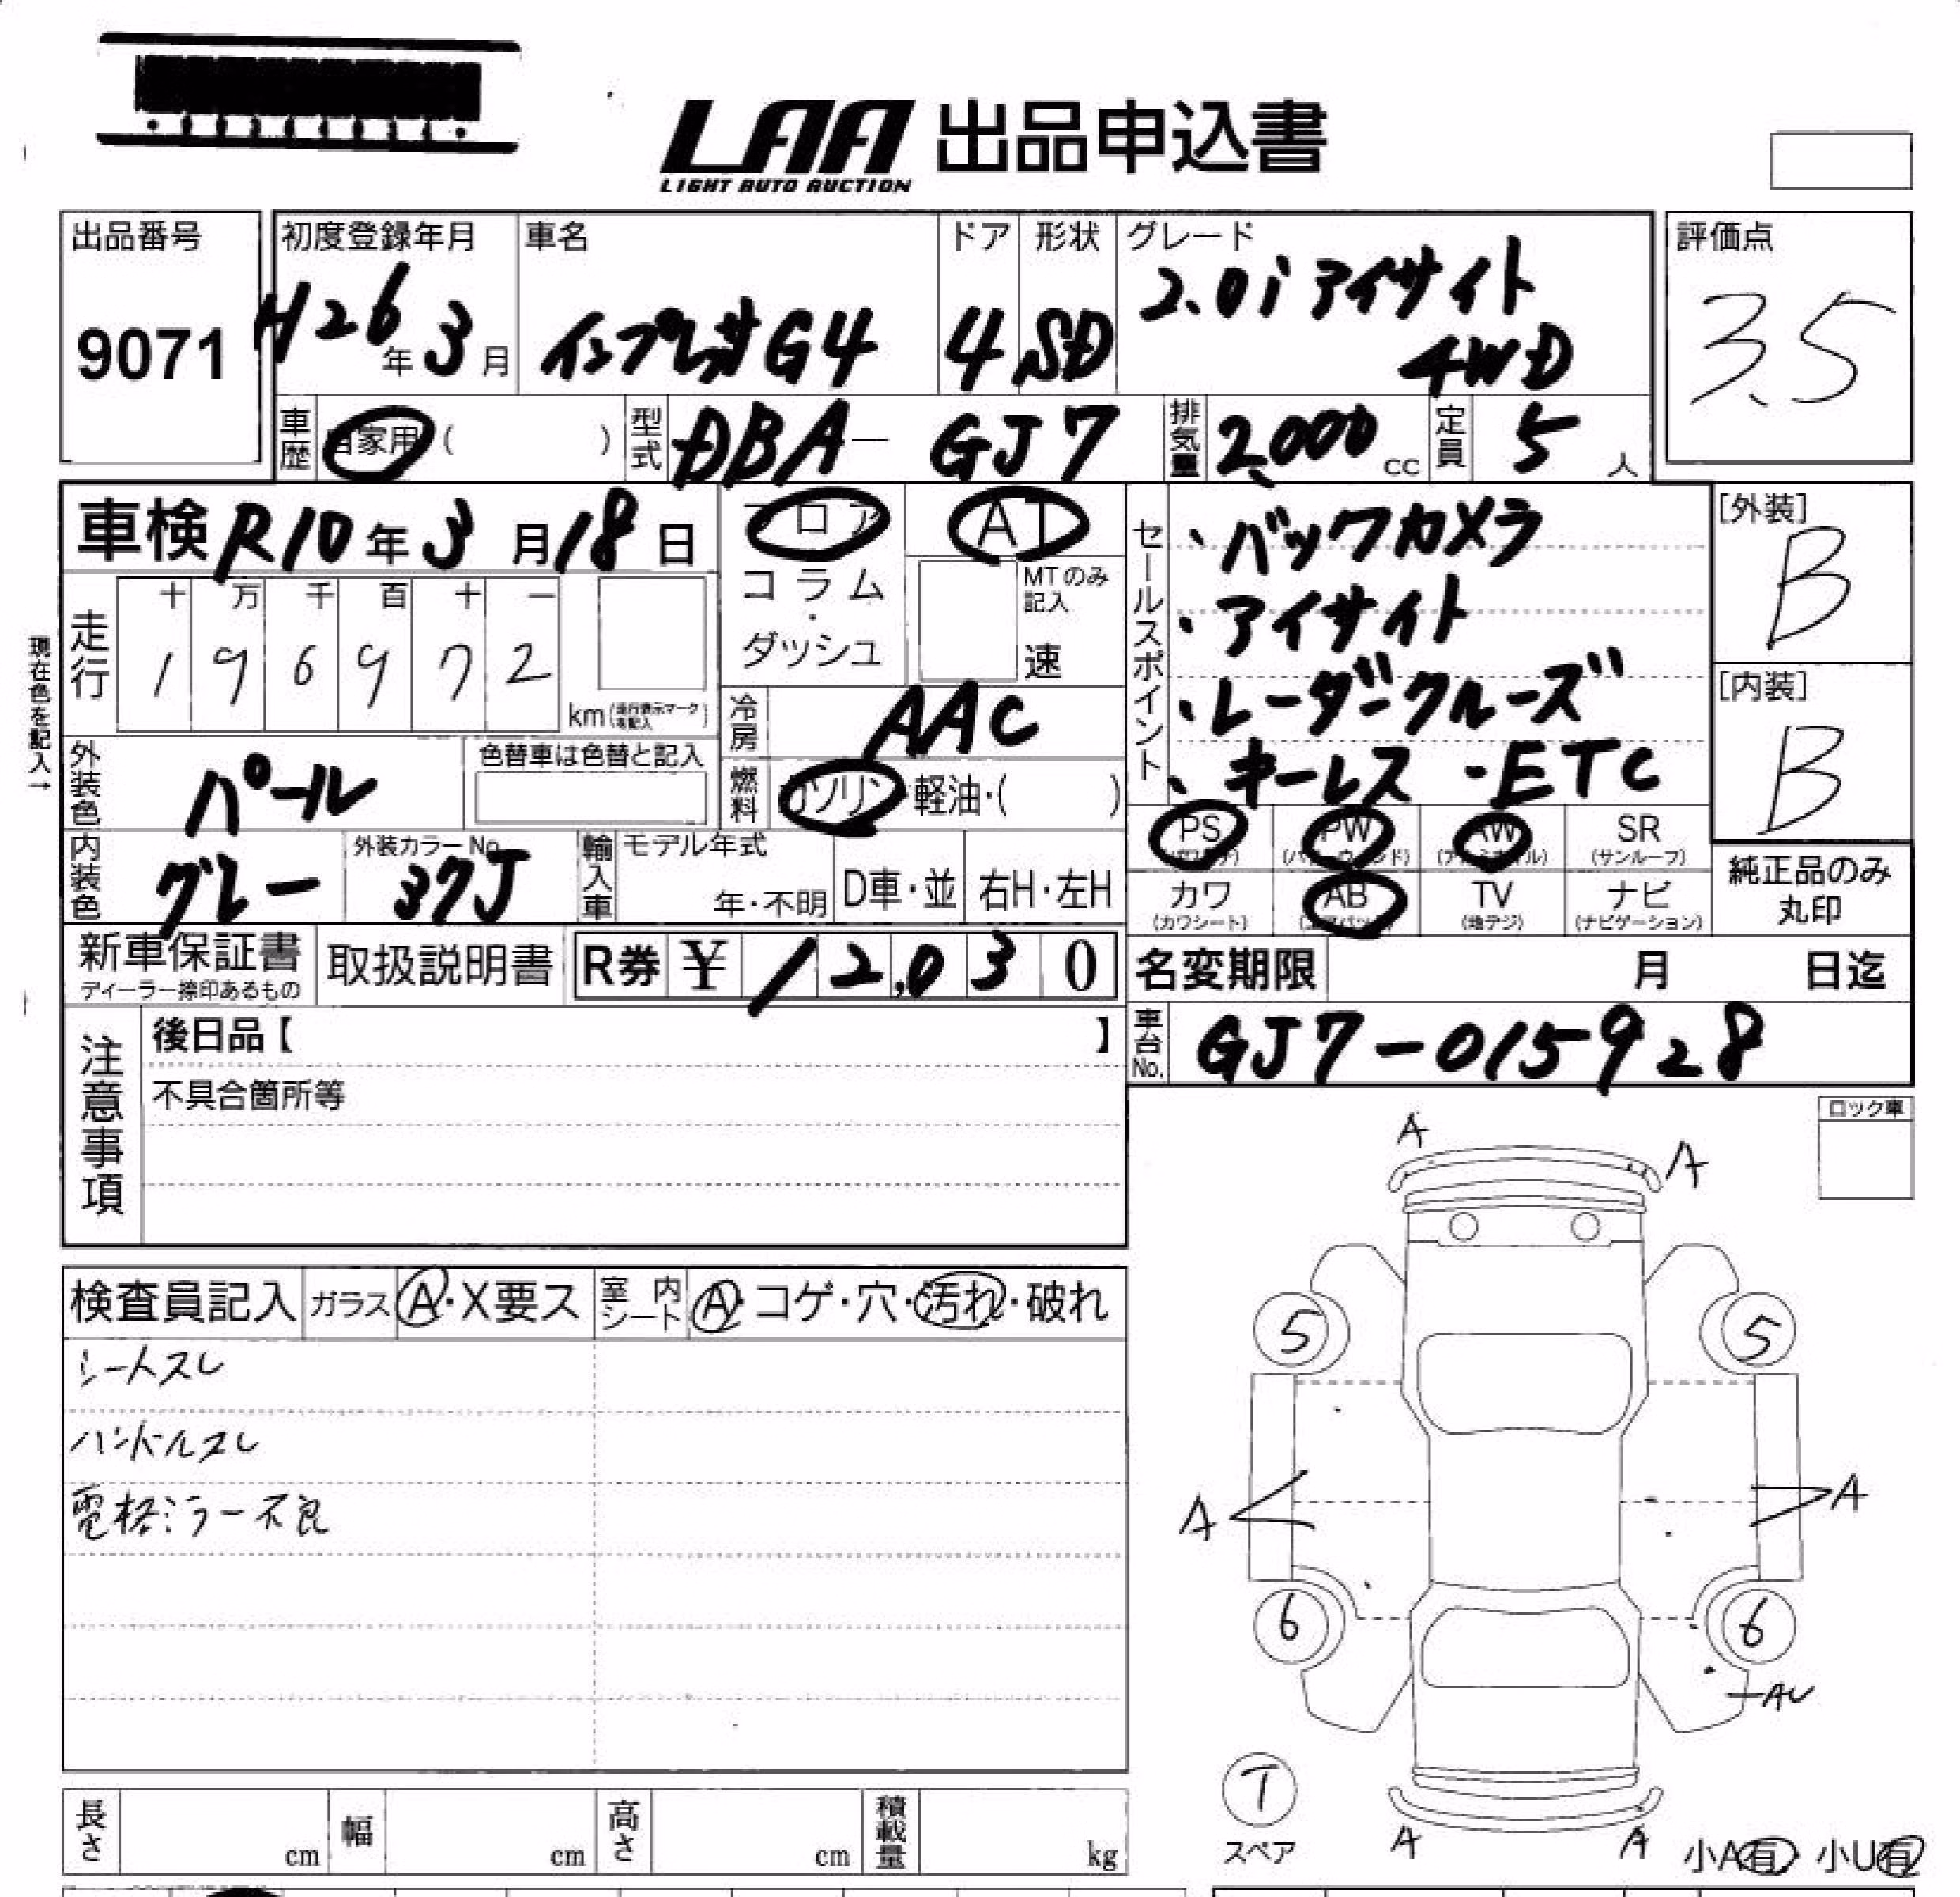 LAA 出品申込書
LIGHT AUTO AUCTION
出品番号
9071
初度登録年月
H26年3月
車名
インプレッサG4
ドア
4
形状
SD
グレード
2.0i アイサイト
4WD
評価点
3.5
車歴 自家用 ( )
型式 DBA- GJ7
排気量 2,000 cc
定員 5 人
車検 R10年3月18日
フロア
コラム・ダッシュ
AT
MTのみ記入
速
走行
十 万 千 百 十 一
1 9 6 9 7 2
km(走行表示マークを記入)
現在色を記入→
冷房 AAC
燃料 ガソリン・軽油・( )
セールスポイント
・バックカメラ
・アイサイト
・レーダークルーズ
・キーレス ・ETC
[外装]
B
[内装]
B
外装色 パール
色替車は色替と記入
内装色 グレー
外装カラーNo. 37J
輸入車
モデル年式
年・不明
D車・並
右H・左H
PS PW AW SR
(パワステ) (パワーウィンド) (アルミホイル) (サンルーフ)
カワ AB TV ナビ
(カワシート) (エアバック) (地デジ) (ナビゲーション)
純正品のみ
丸印
新車保証書
ディーラー捺印あるもの
取扱説明書
R券 ¥ 12,030
名変期限 月 日迄
車台No. GJ7-015928
注意事項
後日品【 】
不具合箇所等
ロック車
検査員記入
ガラス A・X要ス
室内シート A・コゲ・穴・汚れ・破れ
シートスレ
ハンドルスレ
電格ミラー不良
A
A
5
5
A
A
6
6
AU
T
スペア
A
A
小A有 小U有
長さ cm
幅 cm
高さ cm
積載量 kg